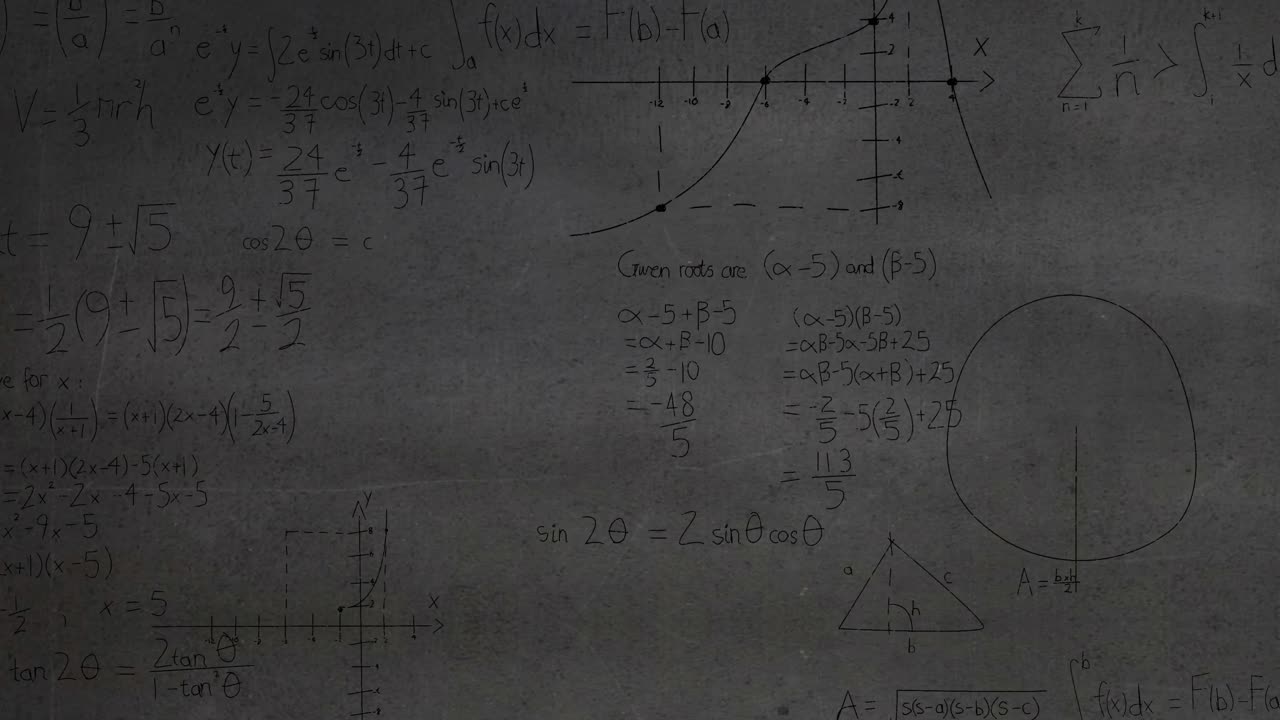 ) = (b/a) = b/aⁿ
e^-t y = ∫2e^t sin(3t)dt+c
∫ₐ f(x)dx = F(b)-F(a)
V = 1/3 πr²h
e^-t y = -24/37 cos(3t) - 4/37 sin(3t)+ce^t
Y(t) = 24/37 e - 4/37 e sin(3t)
4
2
X
-12 -10 -8 -6 -4 -2 2 4
-2
-4
-6
-8
k
∑ 1/n > ∫ 1/x d
n=1
k+1
i
t = 9 ± √5
cos2θ = c
= 1/2 (9 ± √5) = 9/2 ± √5/2
Given roots are (α-5) and (β-5)
α-5+β-5
=α+β-10
= 2/5 -10
= -48/5
(α-5)(β-5)
=αβ-5α-5β+25
=αβ-5(α+β)+25
= -2/5 -5(2/5)+25
= 113/5
e for x :
x-4)(1/(x+1)) = (x+1)(2x-4)(1- 5/(2x-4))
=(x+1)(2x-4)-5(x+1)
=2x²-2x-4-5x-5
x²-9x-5
x+1)(x-5)
-1/2 ; x = 5
sin 2θ = 2 sinθ cosθ
Y
8
6
4
2
X
tan 2θ = 2tanθ/1-tan²θ
a
c
h
b
A = b×h/2
A = √s(s-a)(s-b)(s-c)
∫ᵇ f(x)dx = F(b)-F(a